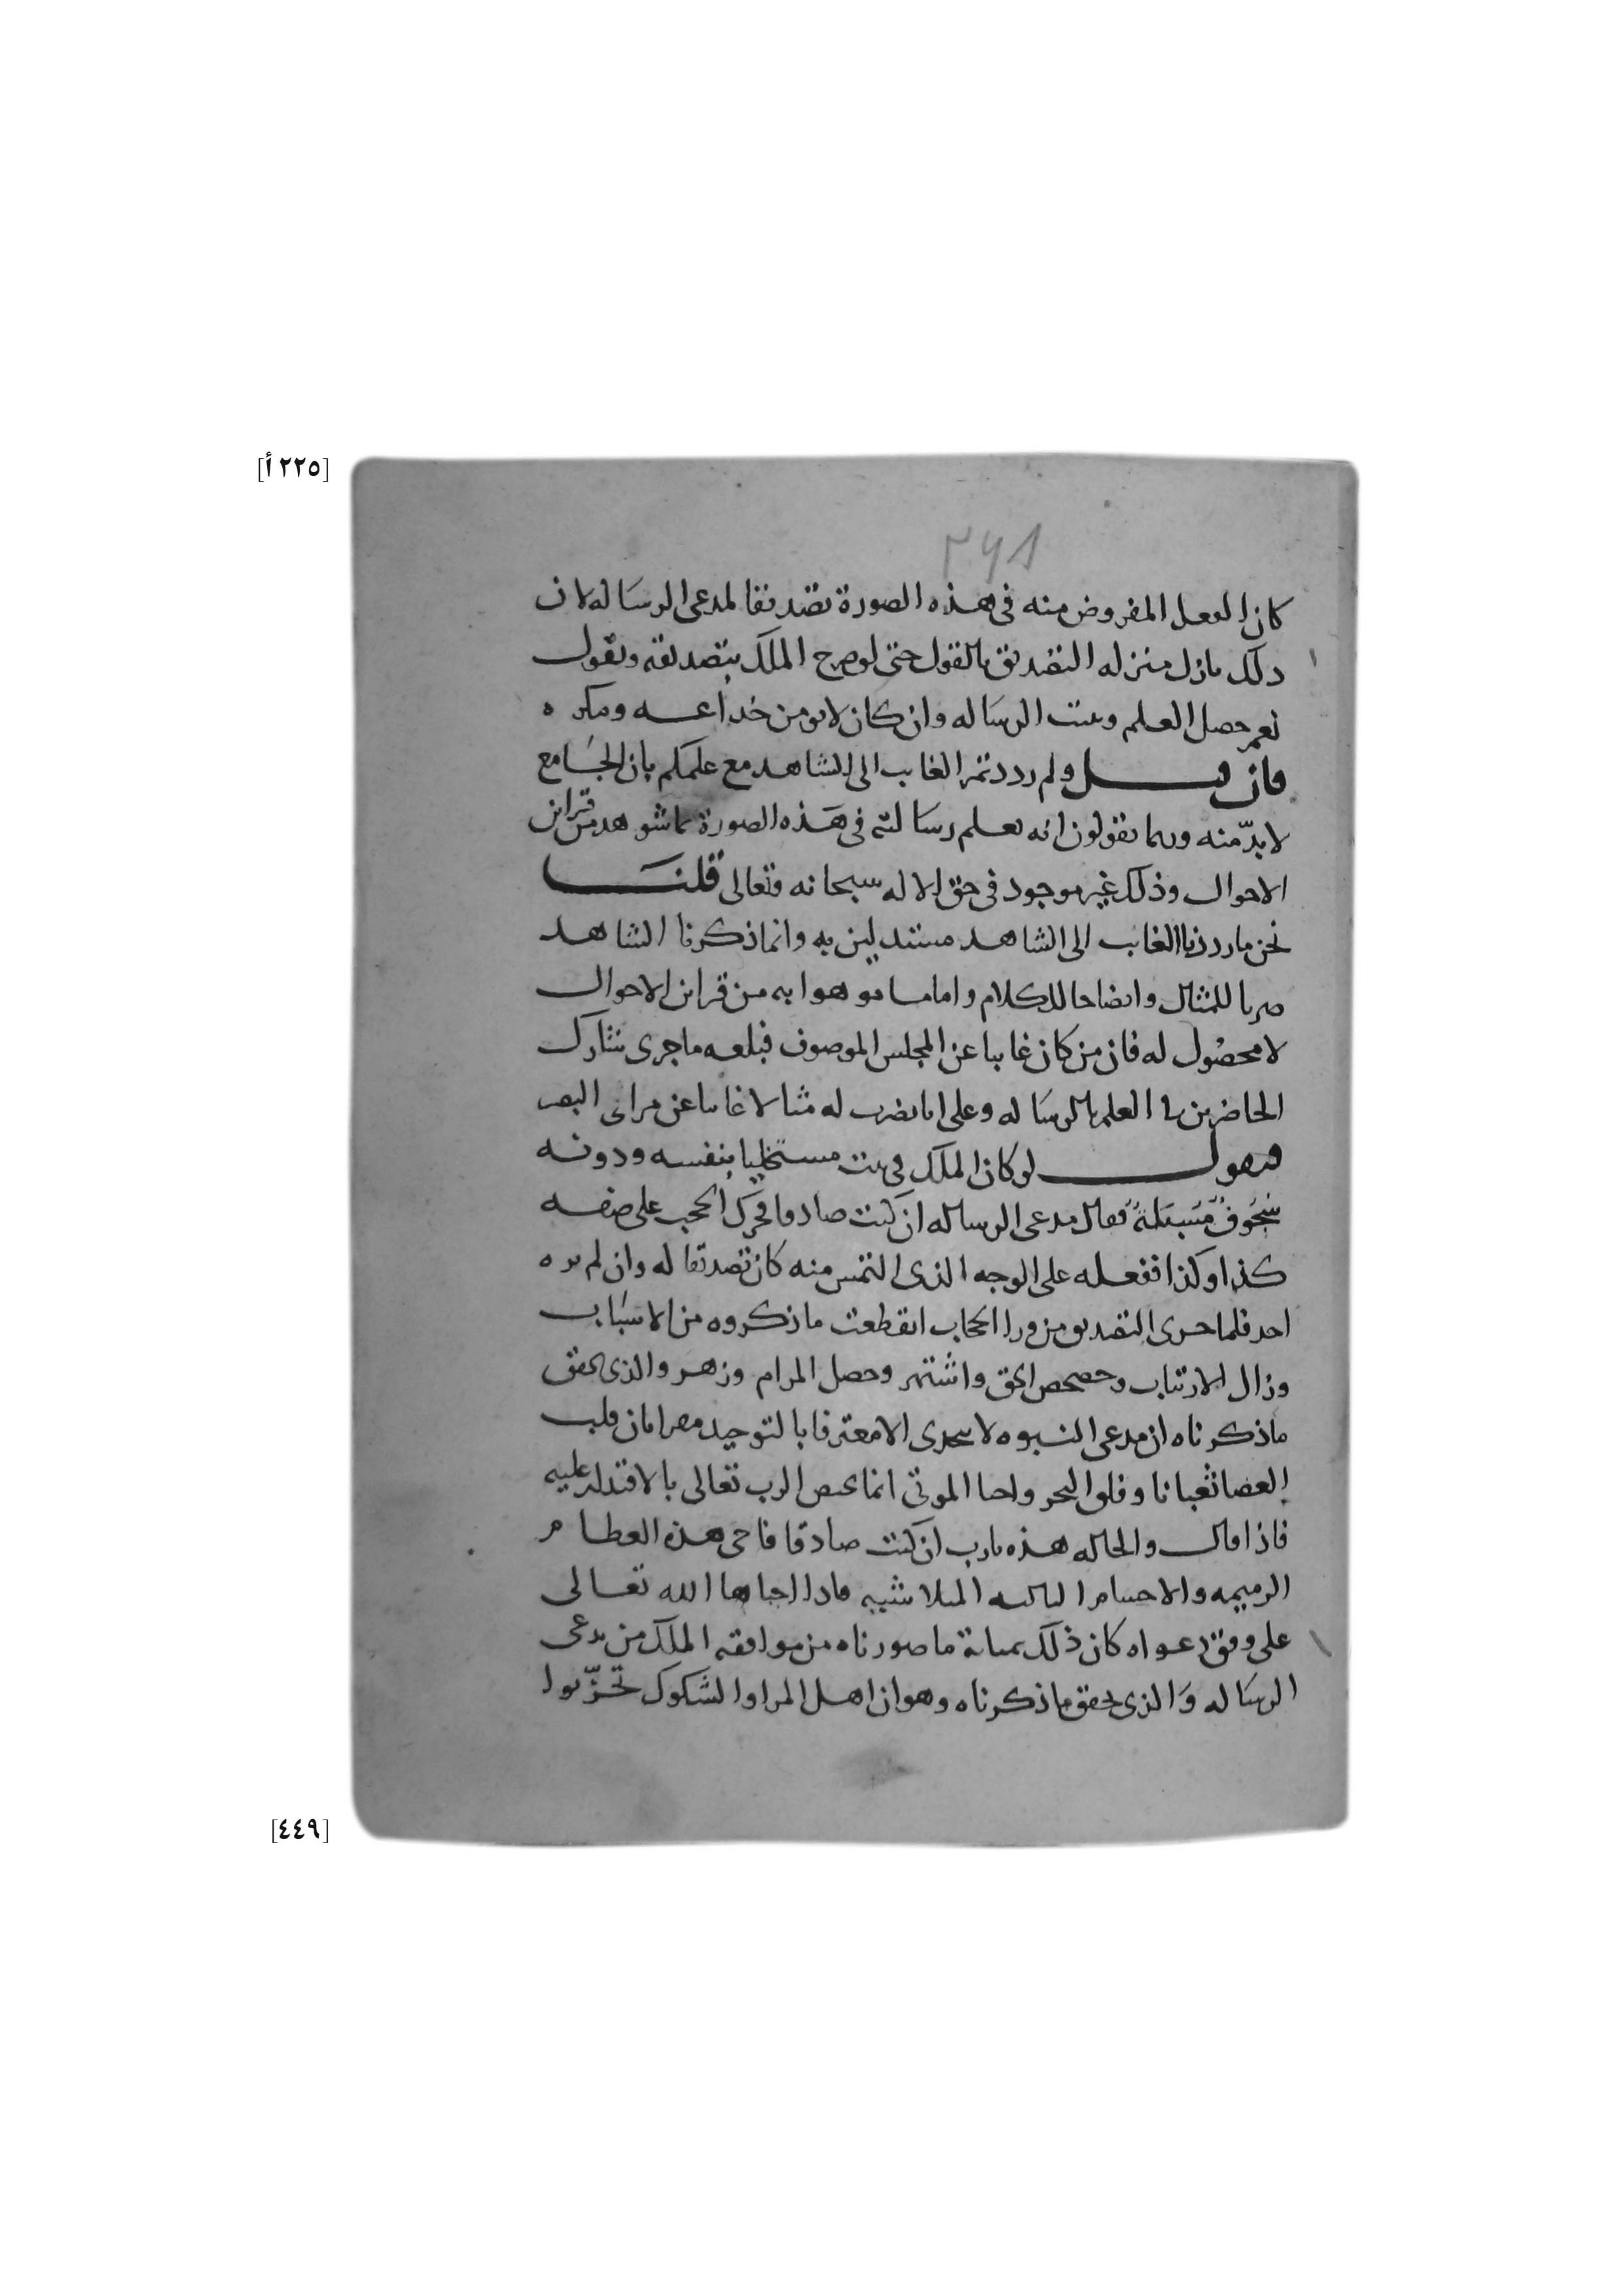 [٢٢٥ أ]
كان الفعل المفروض منه في هذه الصورة تصديقا لمدعى الرساله لان
ذلك نازل منزله التصديق بالقول حتى لو صرح الملك بتصديقه ويقول
نعم حصل العلم وثبتت الرساله وان كان لا يومن خداعه ومكره
فان قيل ولم رددتم الغايب الى الشاهد مع علمكم بان الجامع
لا بدّ منه وربما تقولون انه يعلم رسالته في هذه الصورة بما شوهد من قراين
الاحوال وذلك غير موجود في حق الاله سبحانه وتعالى قلنا
نحن ما رددنا الغائب الى الشاهد مستدلين به وانما ذكرنا الشاهد
ضربا للمثال وايضاحا للكلام واما ما موهوا به من قراين الاحوال
لا محصُول له فان من كان غايبا عن المجلس الموصوف فبلغه ما جرى شارك
الحاضرين في العلم بالرساله وعلى انا نضرب له مثالا غايبا عن مراى البصر
فنقول لو كان الملك في بيت مستخليا بنفسه ودونه
سُجُوفٌ مُسْبَلةٌ فقال مدعى الرساله ان كنت صادقا فحرك الحجب على صفه
كذا وكذا ففعله على الوجه الذى التمس منه كان تصديقا له وان لم يره
احد فلما جرى التصديق من ورا الحجاب انقطعت ما ذكروه من الاسباب
وزال الارتياب وحصحص الحق واشتهر وحصل المرام وزهر والذى يحقق
ما ذكرناه ان مدعى النبوه لا يتحدى الا معترفا بالتوحيد مقرا بان قلب
العصا ثعبانا وفلق البحر واحيا الموتى انما يختص الرب تعالى بالاقتدار عليه
فاذا قال والحاله هذه يا رب ان كنت صادقا فاحى هذه العظام
الرميمه والاجسام الباليه المتلاشيه فاذا احياها الله تعالى
على وفق دعواه كان ذلك بمثابة ما صورناه من موافقه الملك من يدعى
الرساله والذى يحقق ما ذكرناه وهو ان اهل المرا والشكوك تحزّبوا
[٤٤٩]